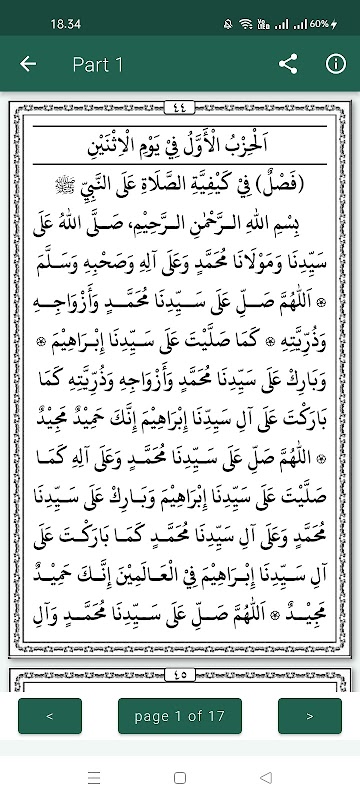 18.34
60%
Part 1
٤٤
اَلْحِزْبُ الْأَوَّلُ فِيْ يَوْمِ الْاِثْنَيْنِ
(فَصْلٌ) فِيْ كَيْفِيَّةِ الصَّلَاةِ عَلَى النَّبِيِّ ﷺ
بِسْمِ اللهِ الرَّحْمٰنِ الرَّحِيْمِ، صَلَّى اللهُ عَلَى
سَيِّدِنَا وَمَوْلَانَا مُحَمَّدٍ وَعَلَى آلِهِ وَصَحْبِهِ وَسَلَّمَ
۞ اَللّٰهُمَّ صَلِّ عَلَى سَيِّدِنَا مُحَمَّدٍ وَأَزْوَاجِهِ
وَذُرِّيَّتِهِ ۞ كَمَا صَلَّيْتَ عَلَى سَيِّدِنَا إِبْرَاهِيْمَ ۞
وَبَارِكْ عَلَى سَيِّدِنَا مُحَمَّدٍ وَأَزْوَاجِهِ وَذُرِّيَّتِهِ كَمَا
بَارَكْتَ عَلَى آلِ سَيِّدِنَا إِبْرَاهِيْمَ إِنَّكَ حَمِيْدٌ مَجِيْدٌ
۞ اَللّٰهُمَّ صَلِّ عَلَى سَيِّدِنَا مُحَمَّدٍ وَعَلَى آلِهِ كَمَا
صَلَّيْتَ عَلَى سَيِّدِنَا إِبْرَاهِيْمَ وَبَارِكْ عَلَى سَيِّدِنَا
مُحَمَّدٍ وَعَلَى آلِ سَيِّدِنَا مُحَمَّدٍ كَمَا بَارَكْتَ عَلَى
آلِ سَيِّدِنَا إِبْرَاهِيْمَ فِيْ الْعَالَمِيْنَ إِنَّكَ حَمِيْدٌ
مَجِيْدٌ ۞ اَللّٰهُمَّ صَلِّ عَلَى سَيِّدِنَا مُحَمَّدٍ وَآلِ
٤٥
< page 1 of 17 >